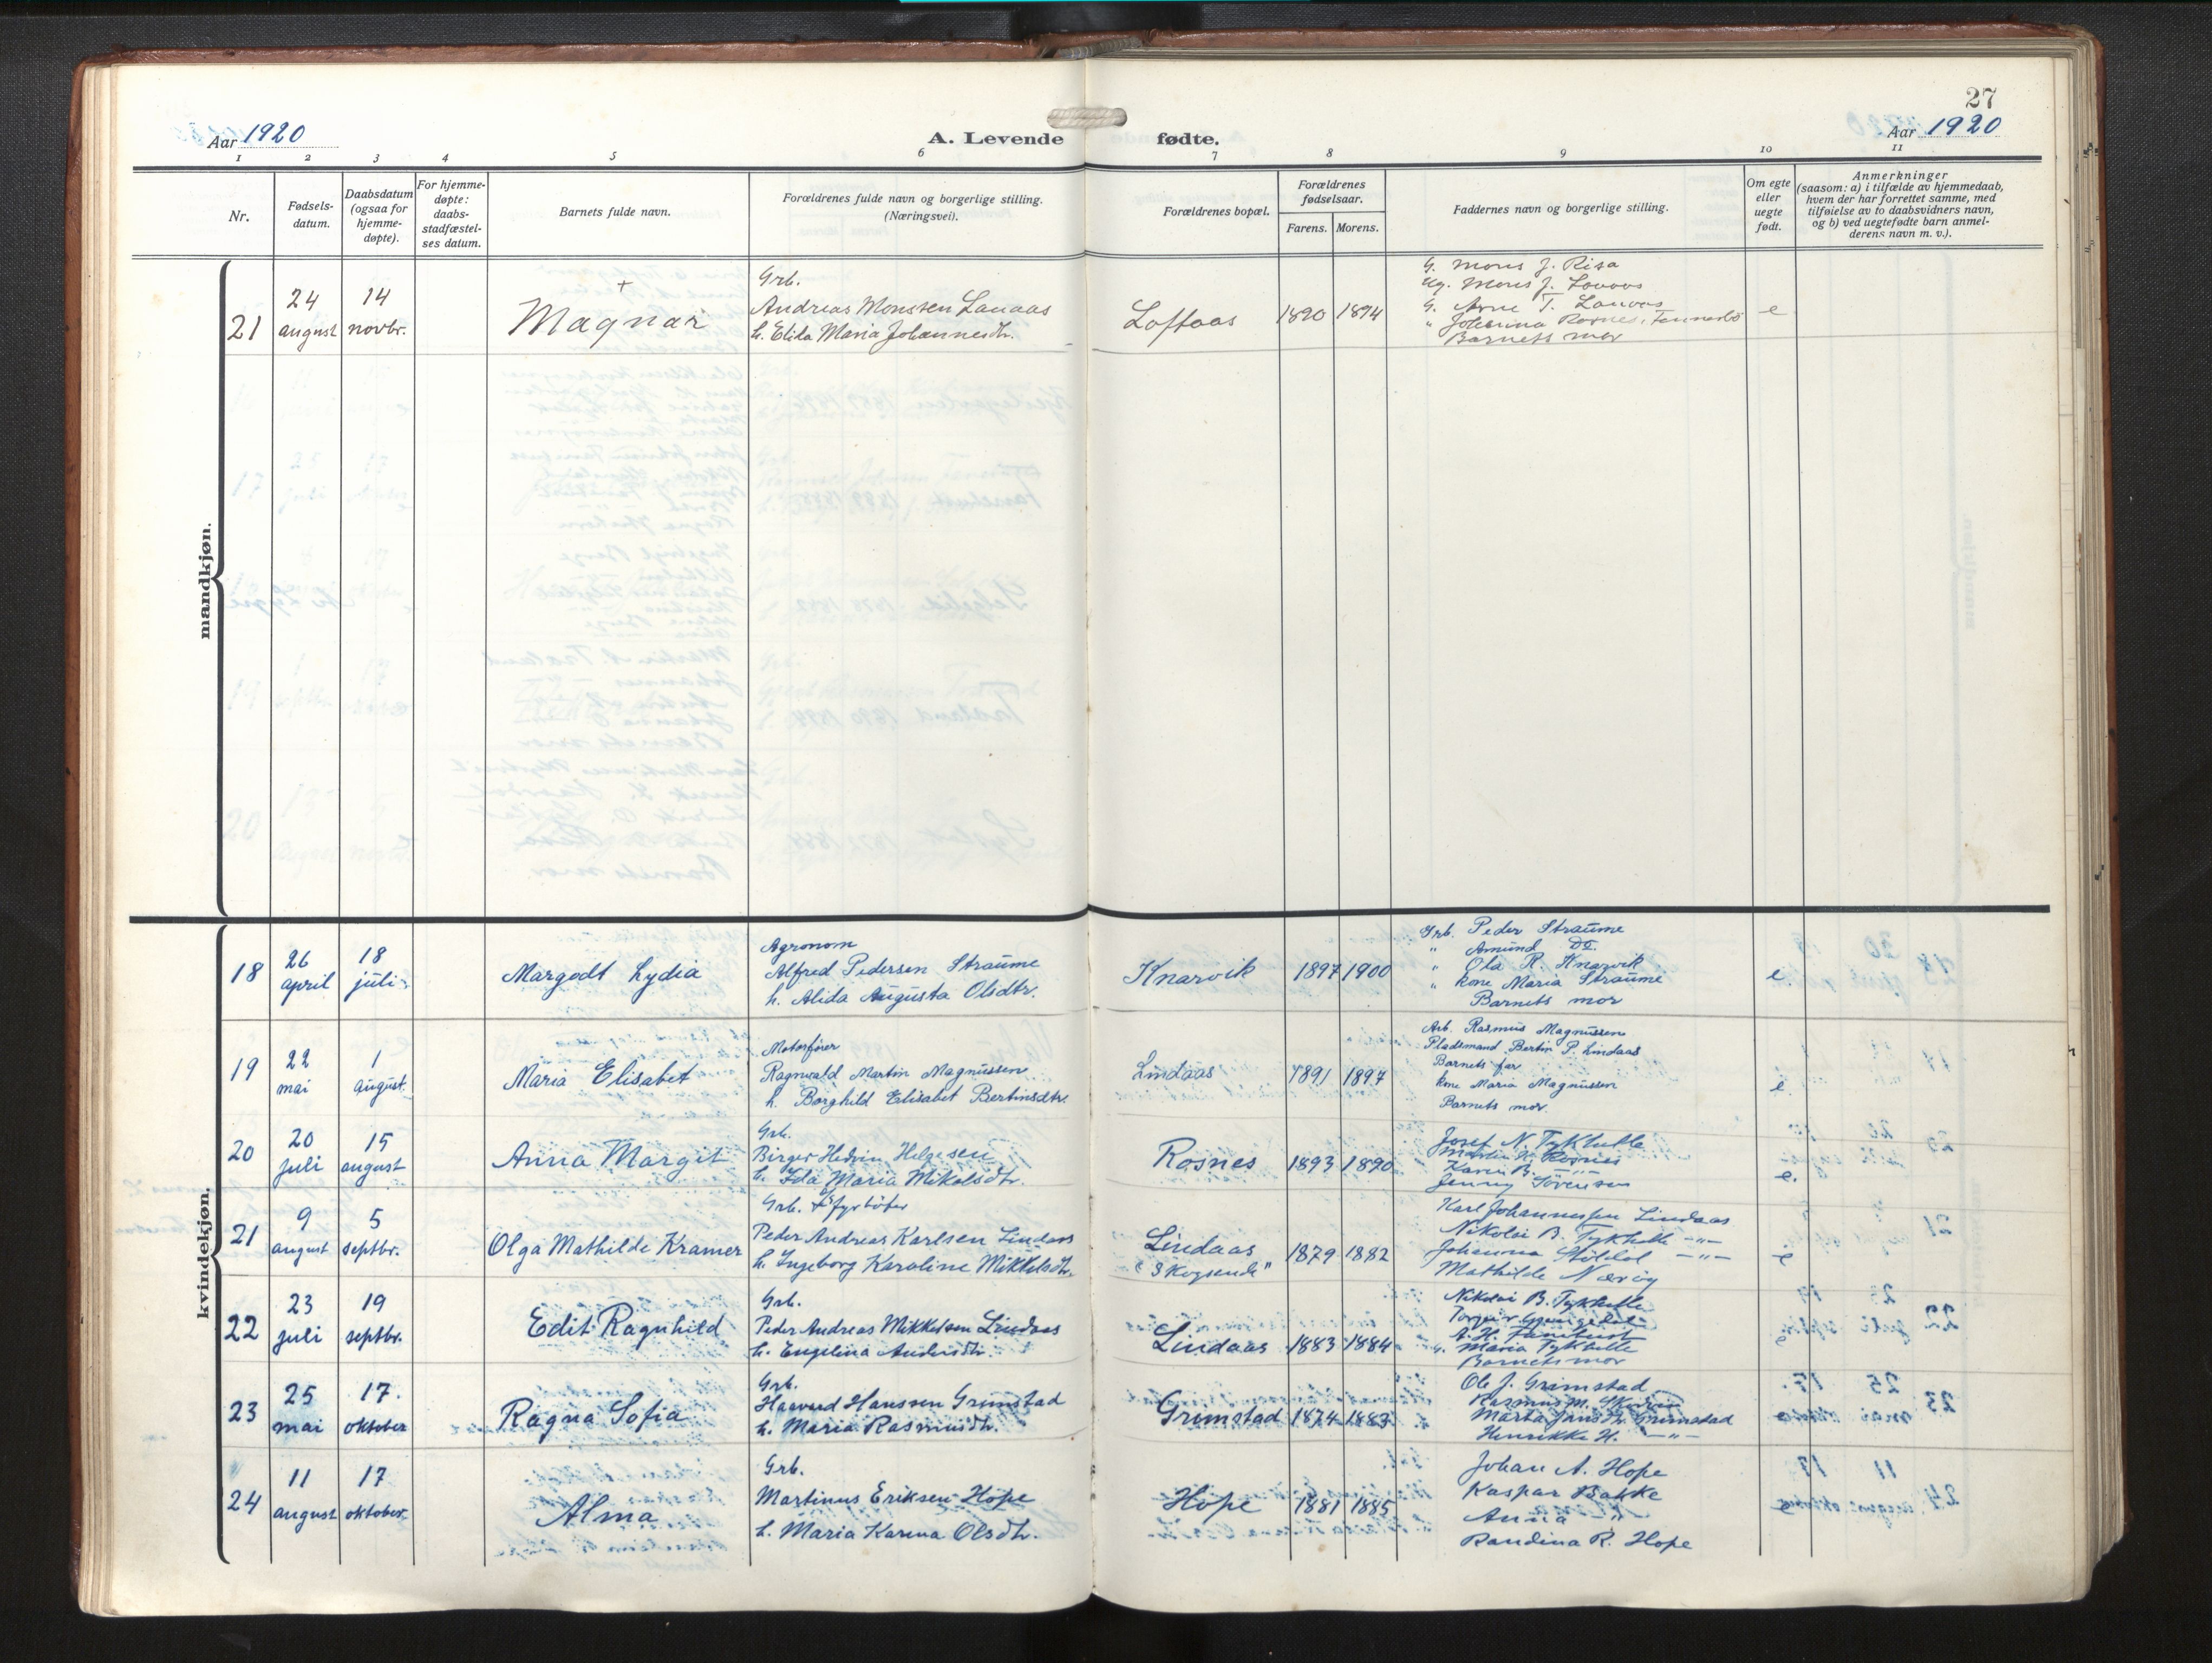 27
Aar 1920
A. Levende fødte.
Aar 1920
1 2 3 4 5 6 7 8 9 10 11
Nr.
Fødsels-
datum.
Daabsdatum
(ogsaa for
hjemme-
døpte).
For hjemme-
døpte:
daabs-
stadfæstel-
ses datum.
Barnets fulde navn.
Forældrenes fulde navn og borgerlige stilling.
(Næringsvei).
Forældrenes bopæl.
Forældrenes
fødselsaar.
Farens. Morens.
Faddernes navn og borgerlige stilling.
Om egte
eller
uegte
født.
Anmerkninger
(saasom: a) i tilfælde av hjemmedaab,
hvem der har forrettet samme, med
tilføielse av to daabsvidners navn,
og b) ved uegtefødte barn anmel-
derens navn m. v.).
mandkjøn.
21
24
august
14
novbr.
+
Magnar
Grb.
Andreas Monssen Lauaas
h. Elida Maria Johannesdtr.
Loftaas
1890 1894
G. Mons J. Risa
Ug. Mons J.
G. Arne T.
" Johanna Rosnes,
Barnets mor
e
kvindekjøn.
18
26
april
18
juli
Margodt Lydia
Agronom
Alfred Pedersen Straume
h. Alida Augusta Olsdtr.
Knarvik
1897 1900
Grb. Peder Straume
" Amund Do.
" Ola R. Knarvik
" kone Maria Straume
Barnets mor
e.
19
22
mai
1
august.
Maria Elisabet
Motorfører
Ragnvald Martin Magnussen
h. Borghild Elisabet Bertinsdtr.
Lindaas
1891 1897
Arb. Rasmus Magnussen
Pladsmand Bertin P. Lindaas
Barnets far
kone Maria Magnussen
Barnets mor.
e.
20
20
juli
15
august
Anna Margit
Grb.
Birger Hedvin Helgesen
h. Ida Maria Mikalsdtr.
Rosnes
1893 1890
Josef N. Tykhelle
Martin K. Rosnes
Karen B. —"—
Jenny Sörensen
e.
21
9
august
5
septbr.
Olga Mathilde Kramer
Grb. & fyrbøter
Peder Andreas Karlsen Lindaas
h. Ingeborg Karoline Mikkelsdtr.
Lindaas
"Skogsende"
1879 1882
Karl Johannessen Lindaas
Nikolai B. Tykhelle —"—
Johanna Stöldal —"—
Mathilde Nærög
e
22
23
juli
19
septbr.
Edit Ragnhild
Grb.
Peder Andreas Mikkelsen Lindaas
h. Engelina Andersdtr.
Lindaas
1883 1884
Nikolai B. Tykhelle
Torgeir
A. H. Fanebust
G. Maria Tykhelle
Barnets mor
e
23
25
mai
17.
oktober
Ragna Sofia
Grb.
Haavard Hanssen Grimstad
h. Maria Rasmusdtr.
Grimstad
1874 1883
Ole J. Grimstad
Rasmus M.
Marta Grimstad
Henrikke H. —"—
e
24
11
august
17
oktober.
Alma
Grb.
Martinus Eriksen Hope
h. Maria Karina Olsdtr.
Hope
1881 1885
Johan A. Hope
Kaspar Bakke
Anna —"—
Randina R. Hope
e